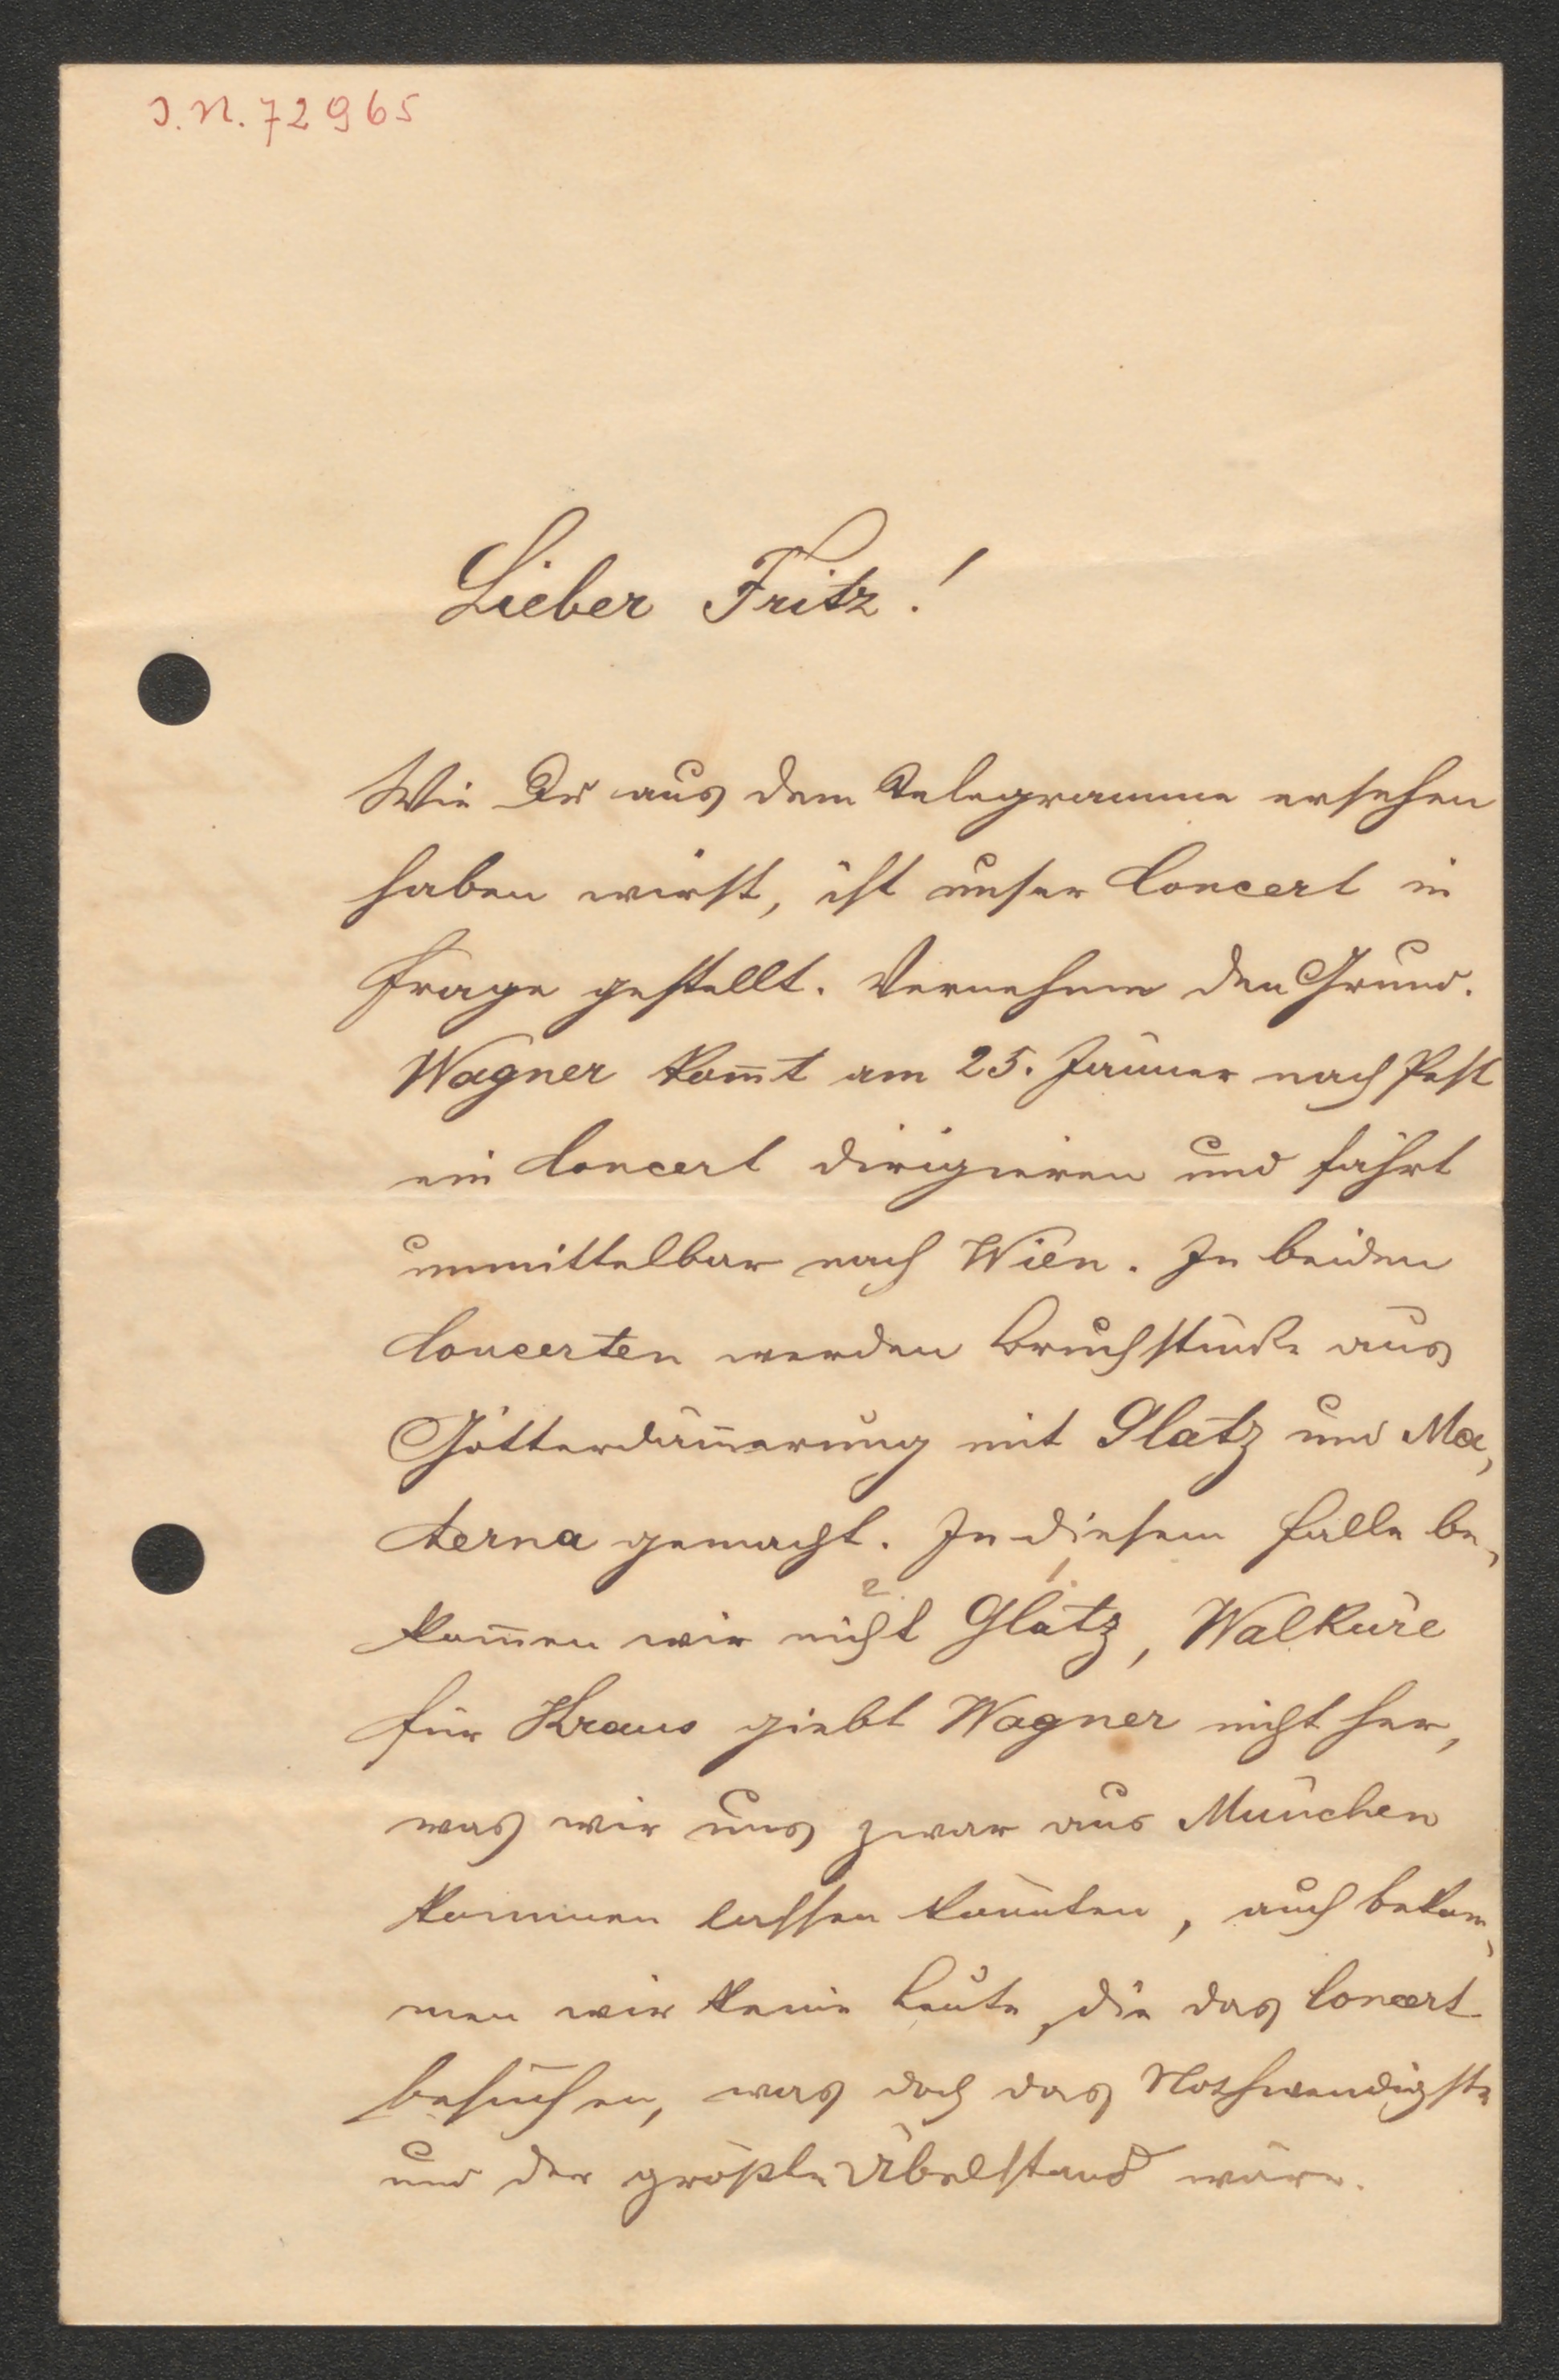 J.N. 72965
Lieber Fritz!
Wie Du aus dem Telegramme ersehen
haben wirst, ist unser Concert in
Frage gestellt. Vernehme den Grund.
Wagner kom̄t am 25. Jänner nach Pest
ein Concert dirigieren und fährt
unmittelbar nach Wien. In beiden
Concerten werden Bruchstücke aus
Götterdäm̄erung mit Glatz und Ma,
terna gemacht. In diesem Falle be,
2. 1.
kom̄en wir nicht Glatz, Walküre
für Kraus giebt Wagner nicht her,
was wir uns zwar aus München
kommen lassen könnten, auch bekom,
men wir keine Leute, die das Concert
besuchen, was doch das Nothwendigste
und der größte Übelstand wäre.